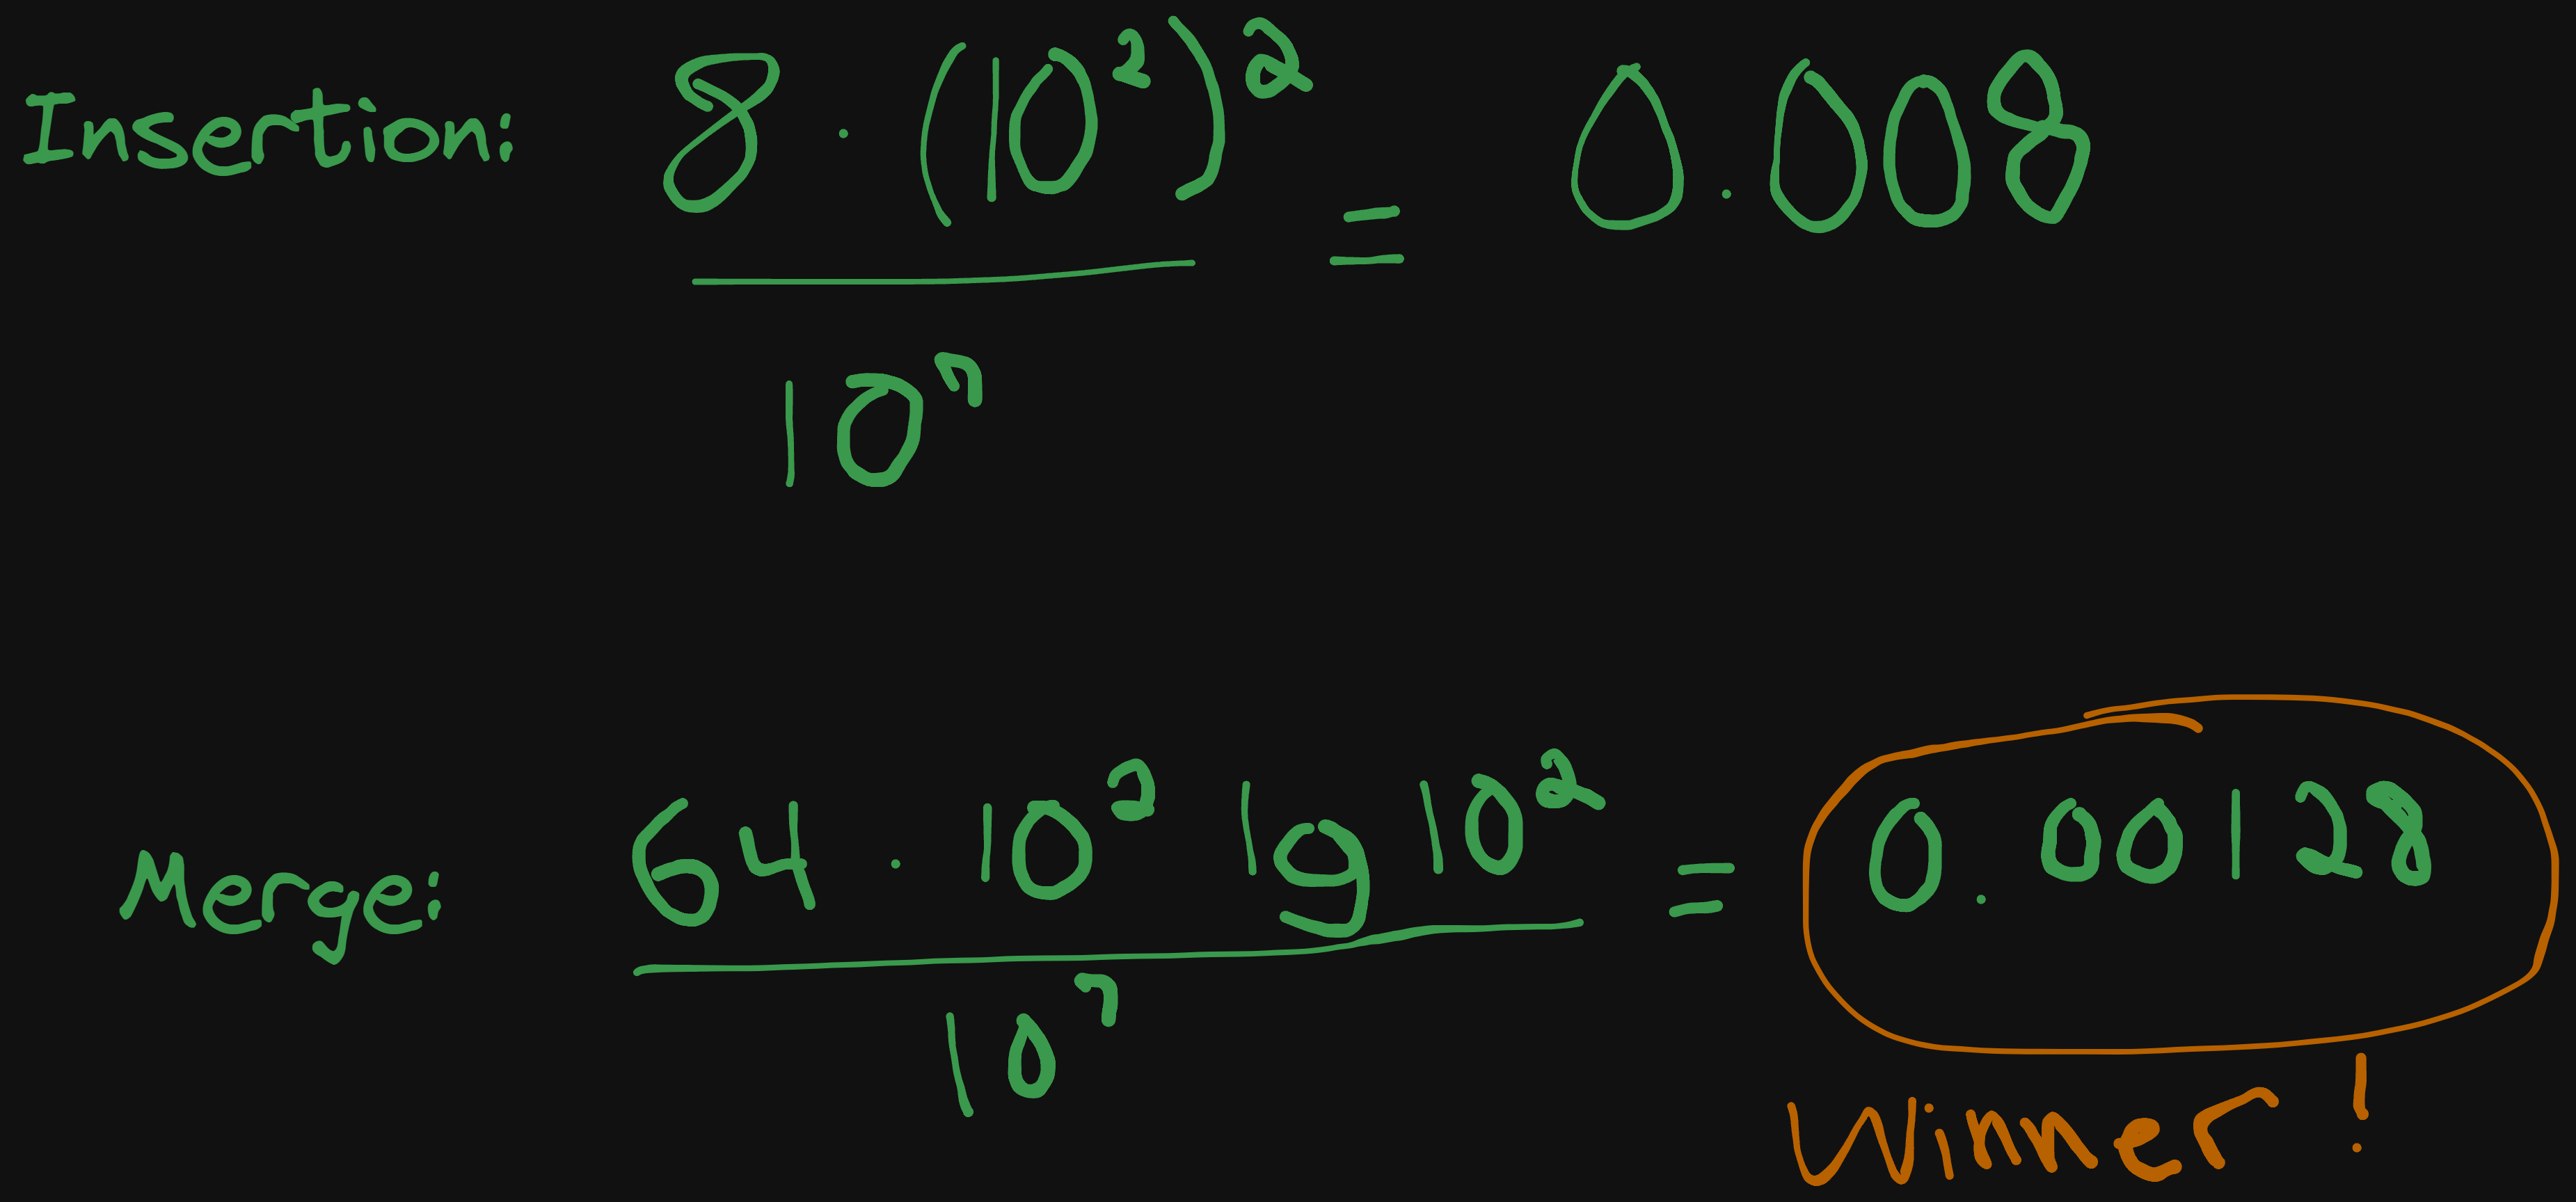 Insertion: 8 · (10²)² / 10⁷ = 0.008
Merge: 64 · 10² lg 10² / 10⁷ = 0.00128
Winner!